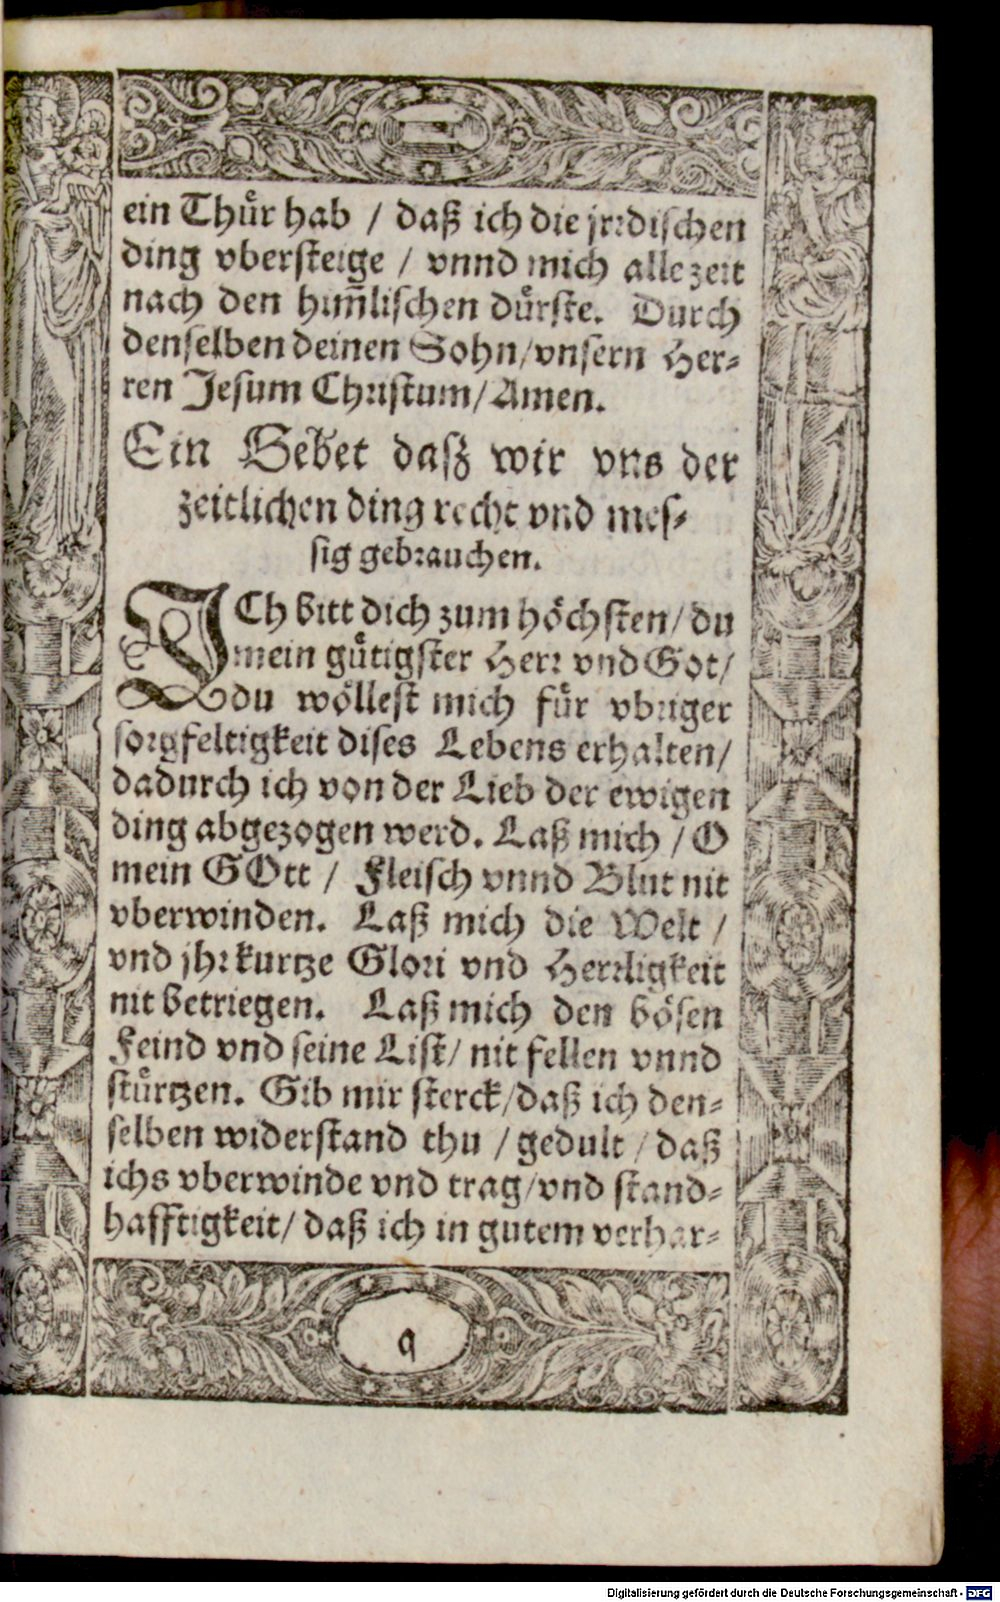 ein Thuͤr hab / daß ich die jrꝛdischen
ding vbersteige / vnnd mich allezeit
nach den him̃lischen duͤrste. Durch
denselben deinen Sohn/vnsern Her-
ren Jesum Christum/Amen.
Ein Gebet dasz wir vns der
zeitlichen ding recht vnd mes-
sig gebrauchen.
ICh bitt dich zum hoͤchsten/du
mein guͤtigster Herꝛ vnd Got/
du woͤllest mich fuͤr vbriger
sorgfeltigkeit dises Lebens erhalten/
dadurch ich von der Lieb der ewigen
ding abgezogen werd. Laß mich / O
mein GOtt / Fleisch vnnd Blut nit
vberwinden. Laß mich die Welt /
vnd jhꝛ kurtze Glori vnd Herꝛligkeit
nit betriegen. Laß mich den boͤsen
Feind vnd seine List/ nit fellen vnnd
stuͤrtzen. Gib mir sterck/daß ich den-
selben widerstand thu / gedult / daß
ichs vberwinde vnd trag/vnd stand-
hafftigkeit/ daß ich in gutem verhar-
q
Digitalisierung gefördert durch die Deutsche Forschungsgemeinschaft - DFG